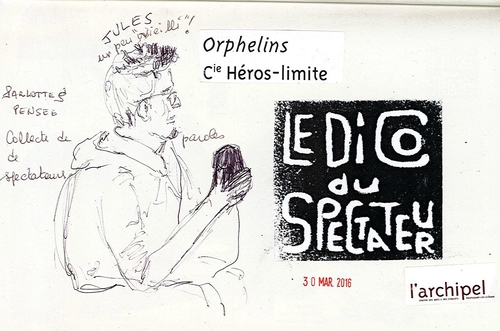 JULES
un peu "vieilli"!
Orphelins
Cie Héros-limite
PENSEE
Collecte de paroles
de
spectateurs
LE DiCO
du
SPECTATEUR
30 MAR. 2016
l'archipel